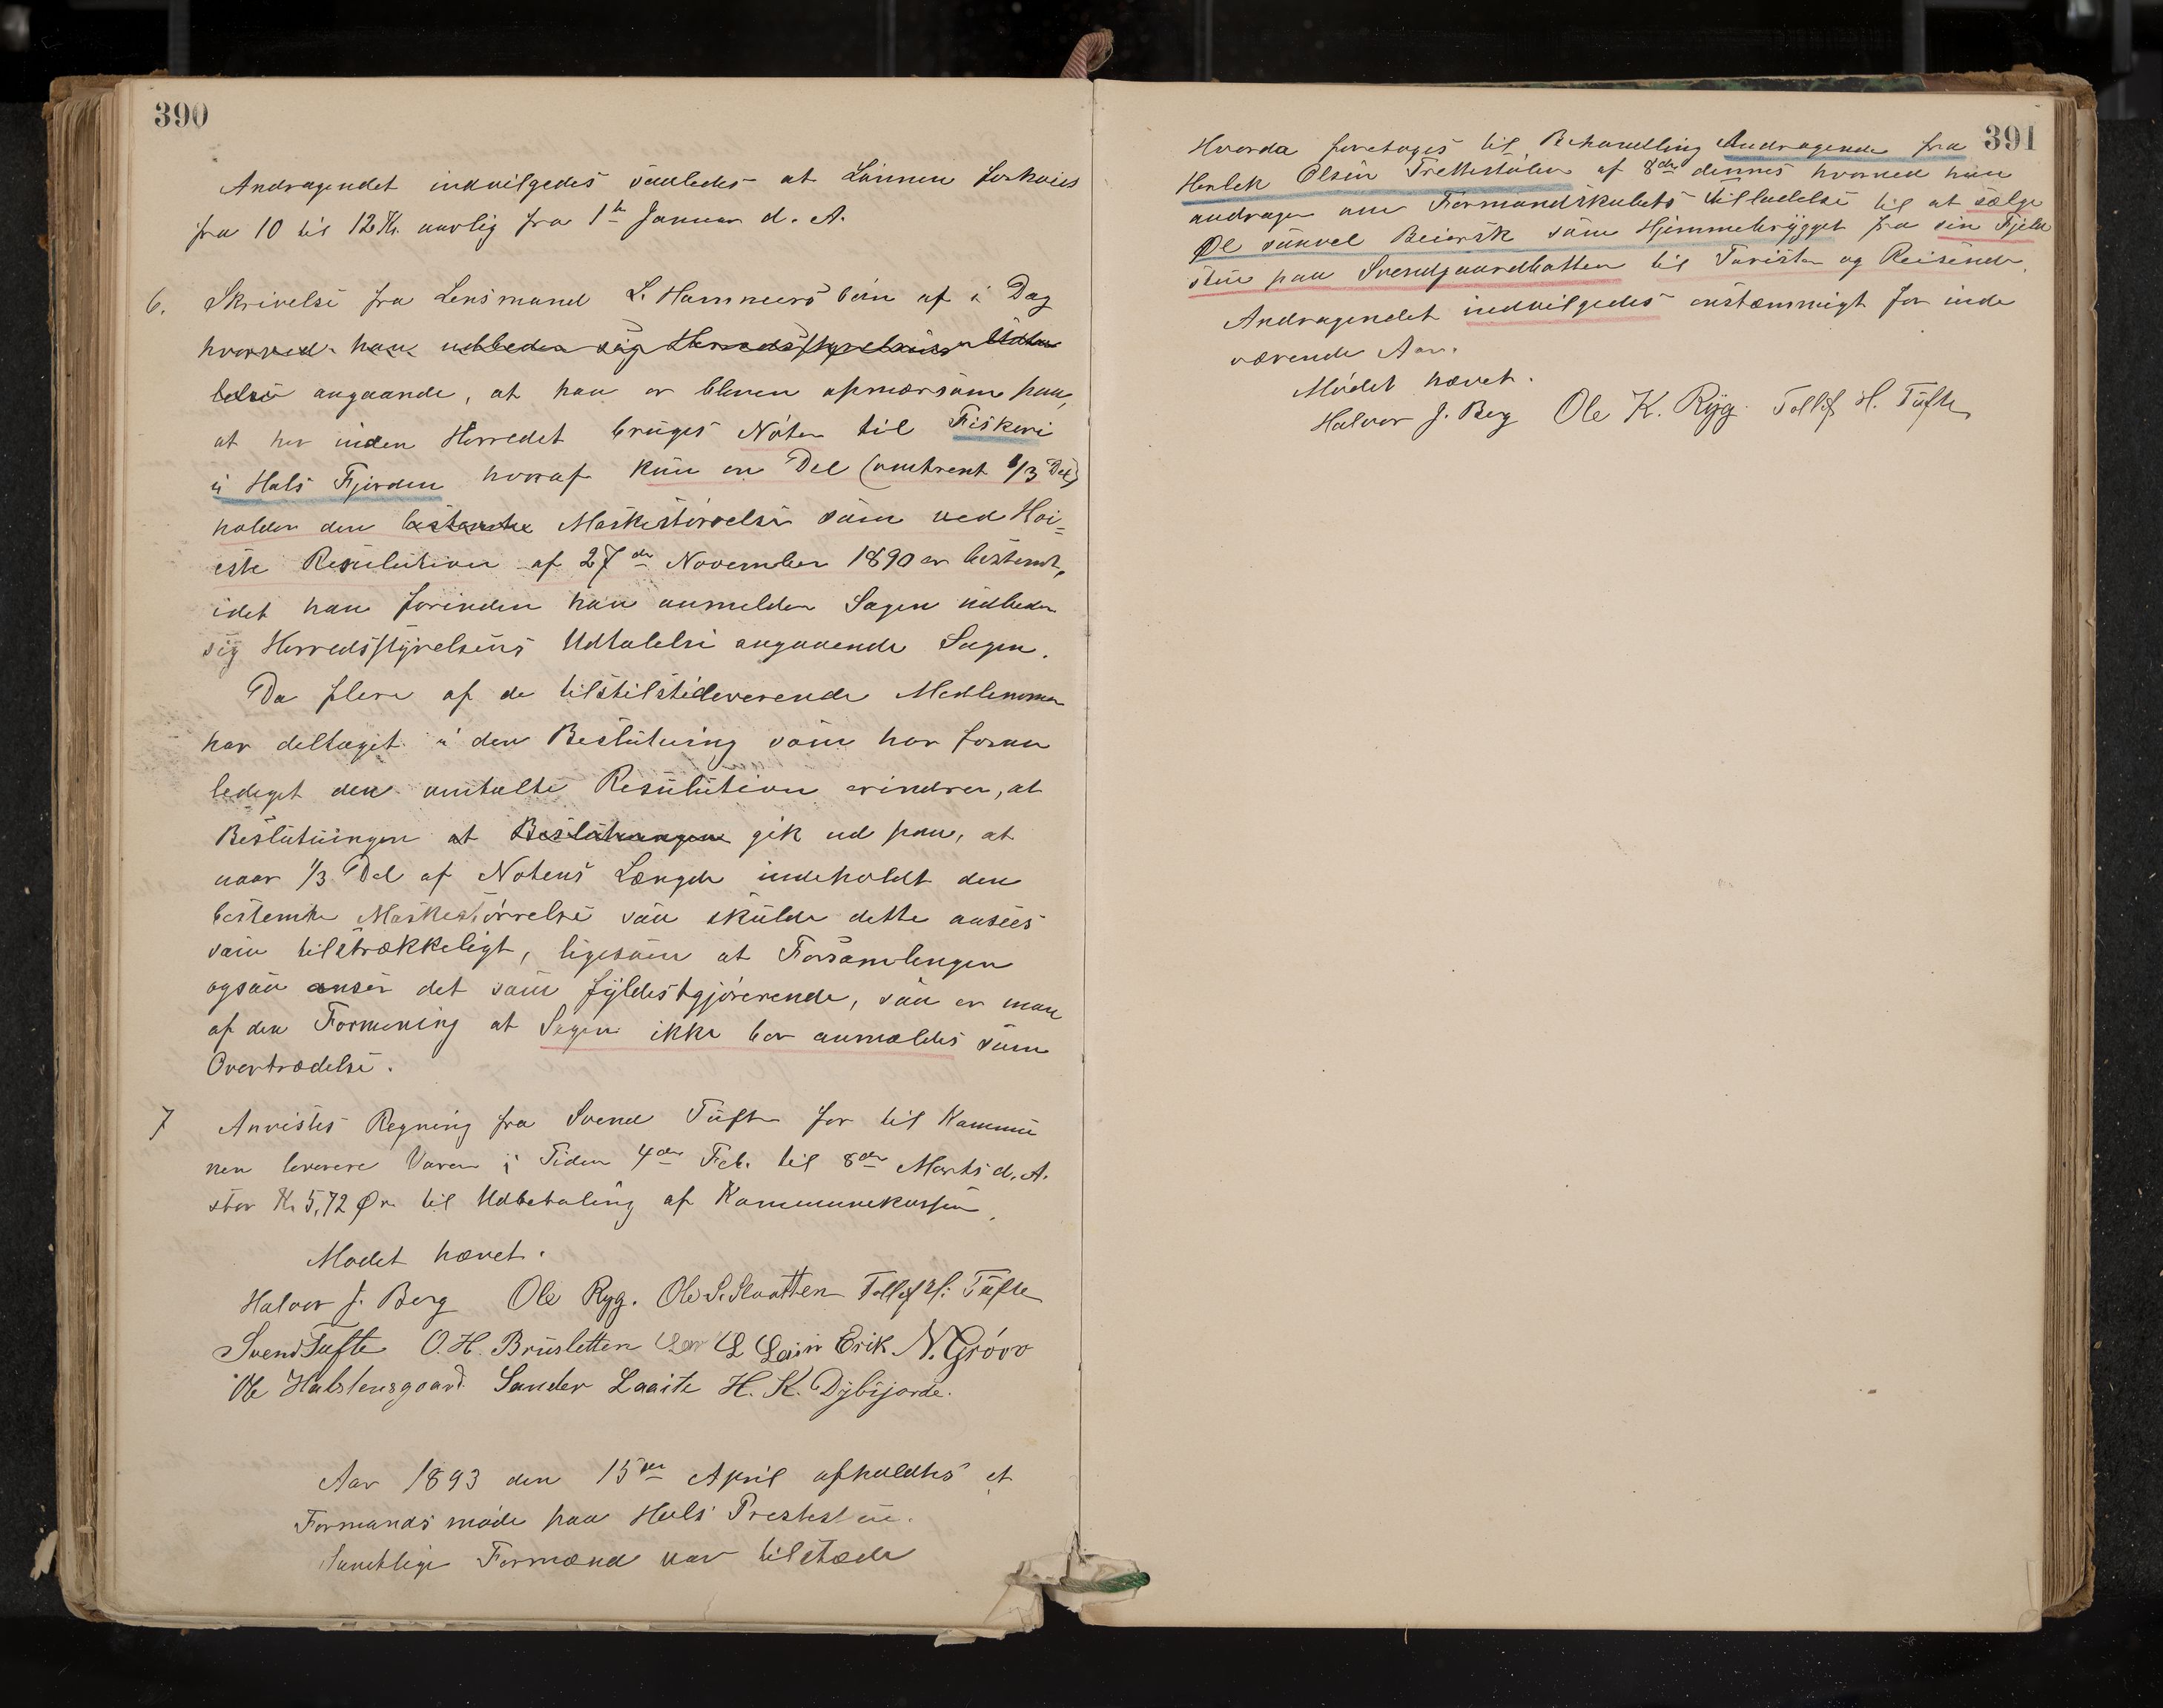 390
Andragendet indvilgedes saaledes at Lönnen forhöies
fra 10 til 12 Kr. aarlig fra 1ste Januar d. A.
6. Skrivelse fra Lensmand L. Hammersböen af i Dag
hvorved han udbeder sig Herredsstyrelsens Udta
lelse angaaende, at han er bleven opmærsom paa,
at her inden Herredet bruges Nöter til Fiskeri
i Hols Fjorden hvoraf kun en Del (omtrent 1/3 Del)
holder den bestemte Maskestörrelse som ved Höi=
este Resulution af 27de November 1890 er bestemt,
idet han forinden han anmelder Sagen udbeder
sig Herredsstyrelsens Udtalelse angaaende Sagen.
Da flere af de tilstilstedeverende Medlemmer
har deltaget i den Beslutning som har foran
lediget den omtalte Resulution erindrer, at
Beslutningen at Beslutningen gik ud paa, at
naar 1/3 Del af Notens Længde indeholdt den
bestemte Maskestörrelse saa skulde dette ansees
som tilstrækkeligt, ligesom at Forsamlingen
ogsaa anser det som fyldestgjörerende, saa er man
af den Formening at Sagen ikke bör anmeldes som
Overtrædelse.
7 Anvistes Regning fra Svend Tufte for til Kommu
nen leverere Varer i Tiden 4de Feb. til 8de Marts d. A.
stor Kr. 5,72 Ør til Udbetaling af Kommunekassen.
Mödet hævet.
Halvor J. Berg Ole Ryg. Ole S. Slaatten Tollef H. Tufte
Svend Tufte O. H. Brusletten Lars L Lein Erik N. Gróov
Ole Halstensgaard. Sander Laaite H. K. Dybsjorde.
Aar 1893 den 15de April afholdtes et
Formands möde paa Hols Prestestue.
Samtlige Formænd var tilstæde
391
Hvorda foretoges til Behandling Andragende fra
Herlek Olsen Trettestölen af 8de dennes hvorved han
andrager om Formandskabets tilladelse til at sælge
Øl saavel Beiersk som Hjemmebrygget fra sin Fjeld
stue paa Svendgaardbotten til Turister og Reisende.
Andragendet indvilgedes enstemmigt for inde
værende Aar.
Mödet hævet.
Halvor J. Berg Ole K. Ryg. Tollef H. Tufte